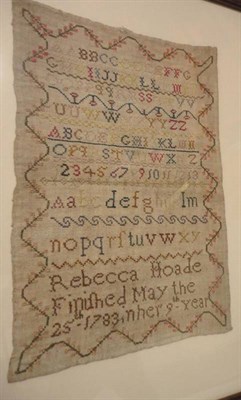 BBCC FFG
G HJJ LL II
QQ SS VV
UUVVW YYZZ
ABCDE GHI KLMN
OPQ STV WXZ
234567 9 10 11 12 13
Aabcdefghi lm
nopqrſtuvwxy
Rebecca Hoade
Finished May the
25th 1783 in her 9th Year